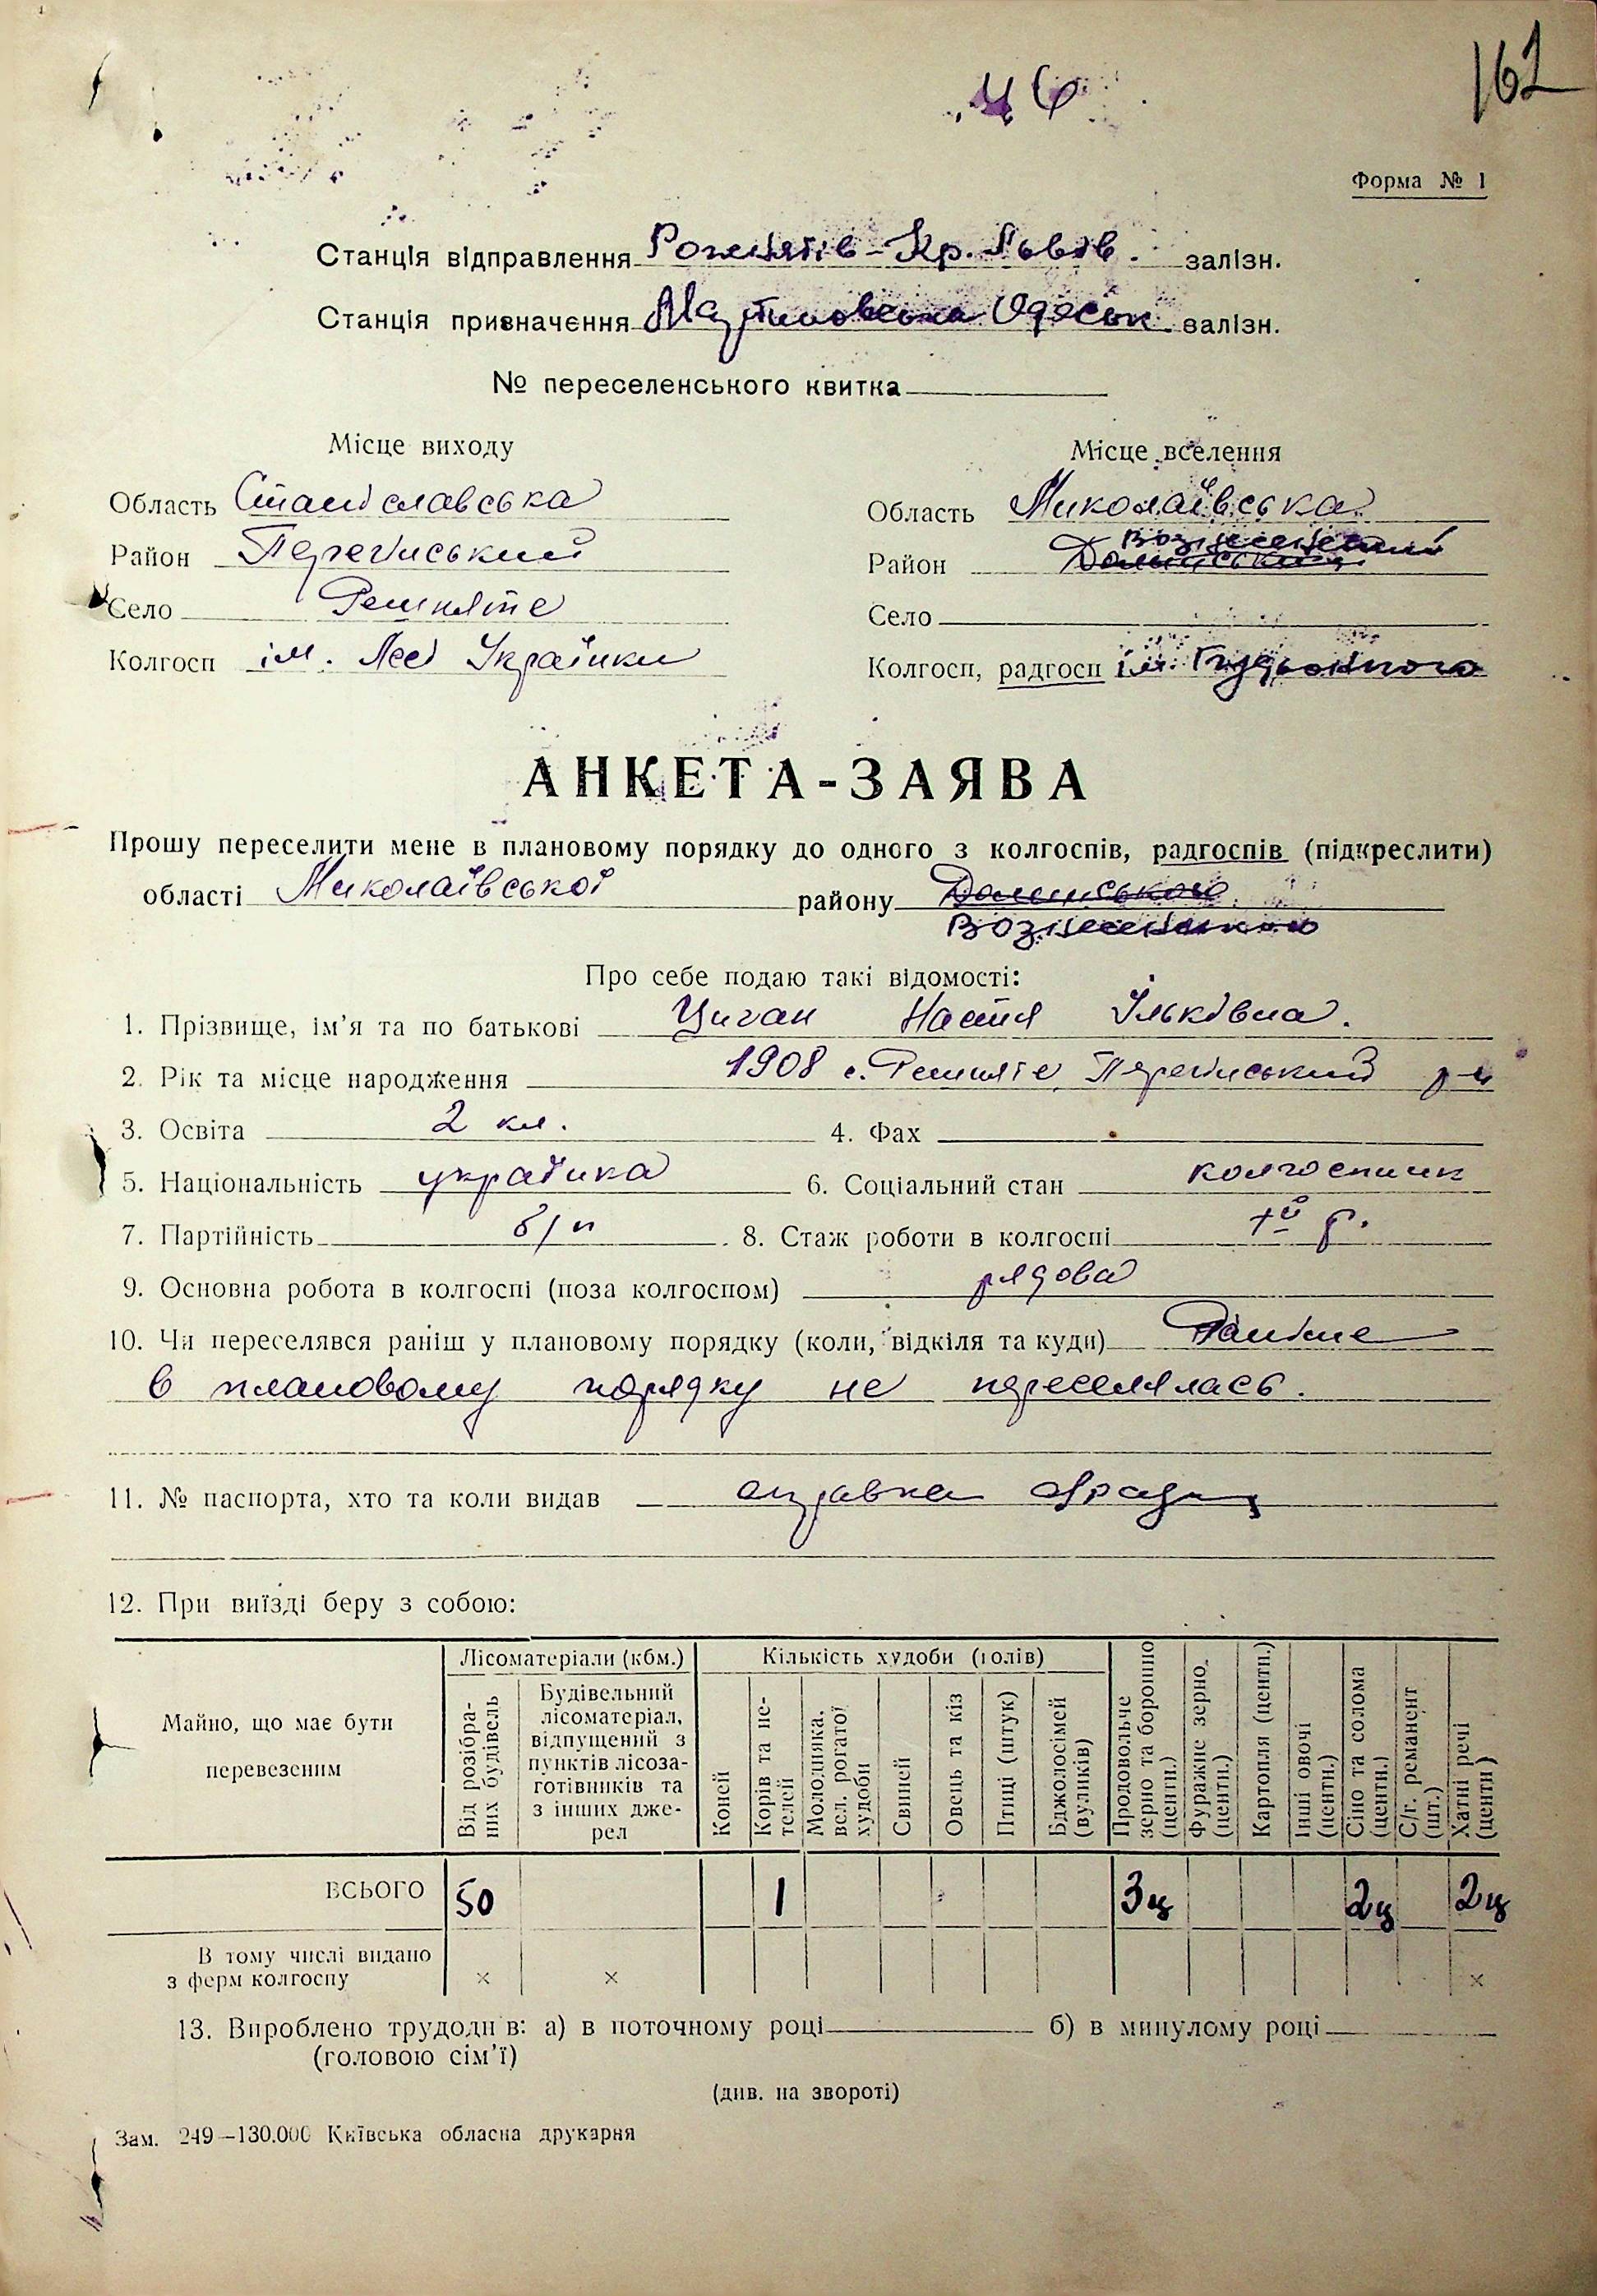 162
46
Форма № 1
Станція відправлення Рожнятів-Кр. Львів. залізн.
Станція призначення Мартиновська Одеськ залізн.
№ переселенського квитка
Місце виходу
Область Станіславська
Район Перегінський
Село Рошняте
Колгосп ім. Лесі Українки
Місце вселення
Область Миколаївська
Район Вознесенський
Село
Колгосп, радгосп ім. Будьонного
АНКЕТА-ЗАЯВА
Прошу переселити мене в плановому порядку до одного з колгоспів, радгоспів (підкреслити)
області Миколаївської району
Вознесенського
Про себе подаю такі відомості:
1. Прізвище, ім'я та по батькові Циган Настя Ільківна.
2. Рік та місце народження 1908 с. Рошняте Перегінський р-н
3. Освіта 2 кл. 4. Фах
5. Національність українка 6. Соціальний стан колгоспник
7. Партійність б/п 8. Стаж роботи в колгоспі р.
9. Основна робота в колгоспі (поза колгоспом) рядова
10. Чи переселявся раніш у плановому порядку (коли, відкіля та куди) Раніше
в плановому порядку не переселялась.
11. № паспорта, хто та коли видав
12. При виїзді беру з собою:
Майно, що має бути перевезеним
Лісоматеріали (кбм.)
Від розібраних будівель
Будівельний лісоматеріал, відпущений з пунктів лісозаготівників та з інших джерел
Кількість худоби (голів)
Коней
Корів та нетелей
Молодняка, вел. рогатої худоби
Свиней
Овець та кіз
Птиці (штук)
Бджолосімей (вуликів)
Продовольче зерно та борошно (центн.)
Фуражне зерно (центн.)
Картопля (центн.)
Інші овочі (центн.)
Сіно та солома (центн.)
С/г. реманент (шт.)
Хатні речі (центн)
ВСЬОГО 50 1 3ц 2ц 2ц
В тому числі видано з ферм колгоспу × × ×
13. Вироблено трудоднів: а) в поточному році б) в минулому році
(головою сім'ї)
(див. на звороті)
Зам. 249—130.000 Київська обласна друкарня